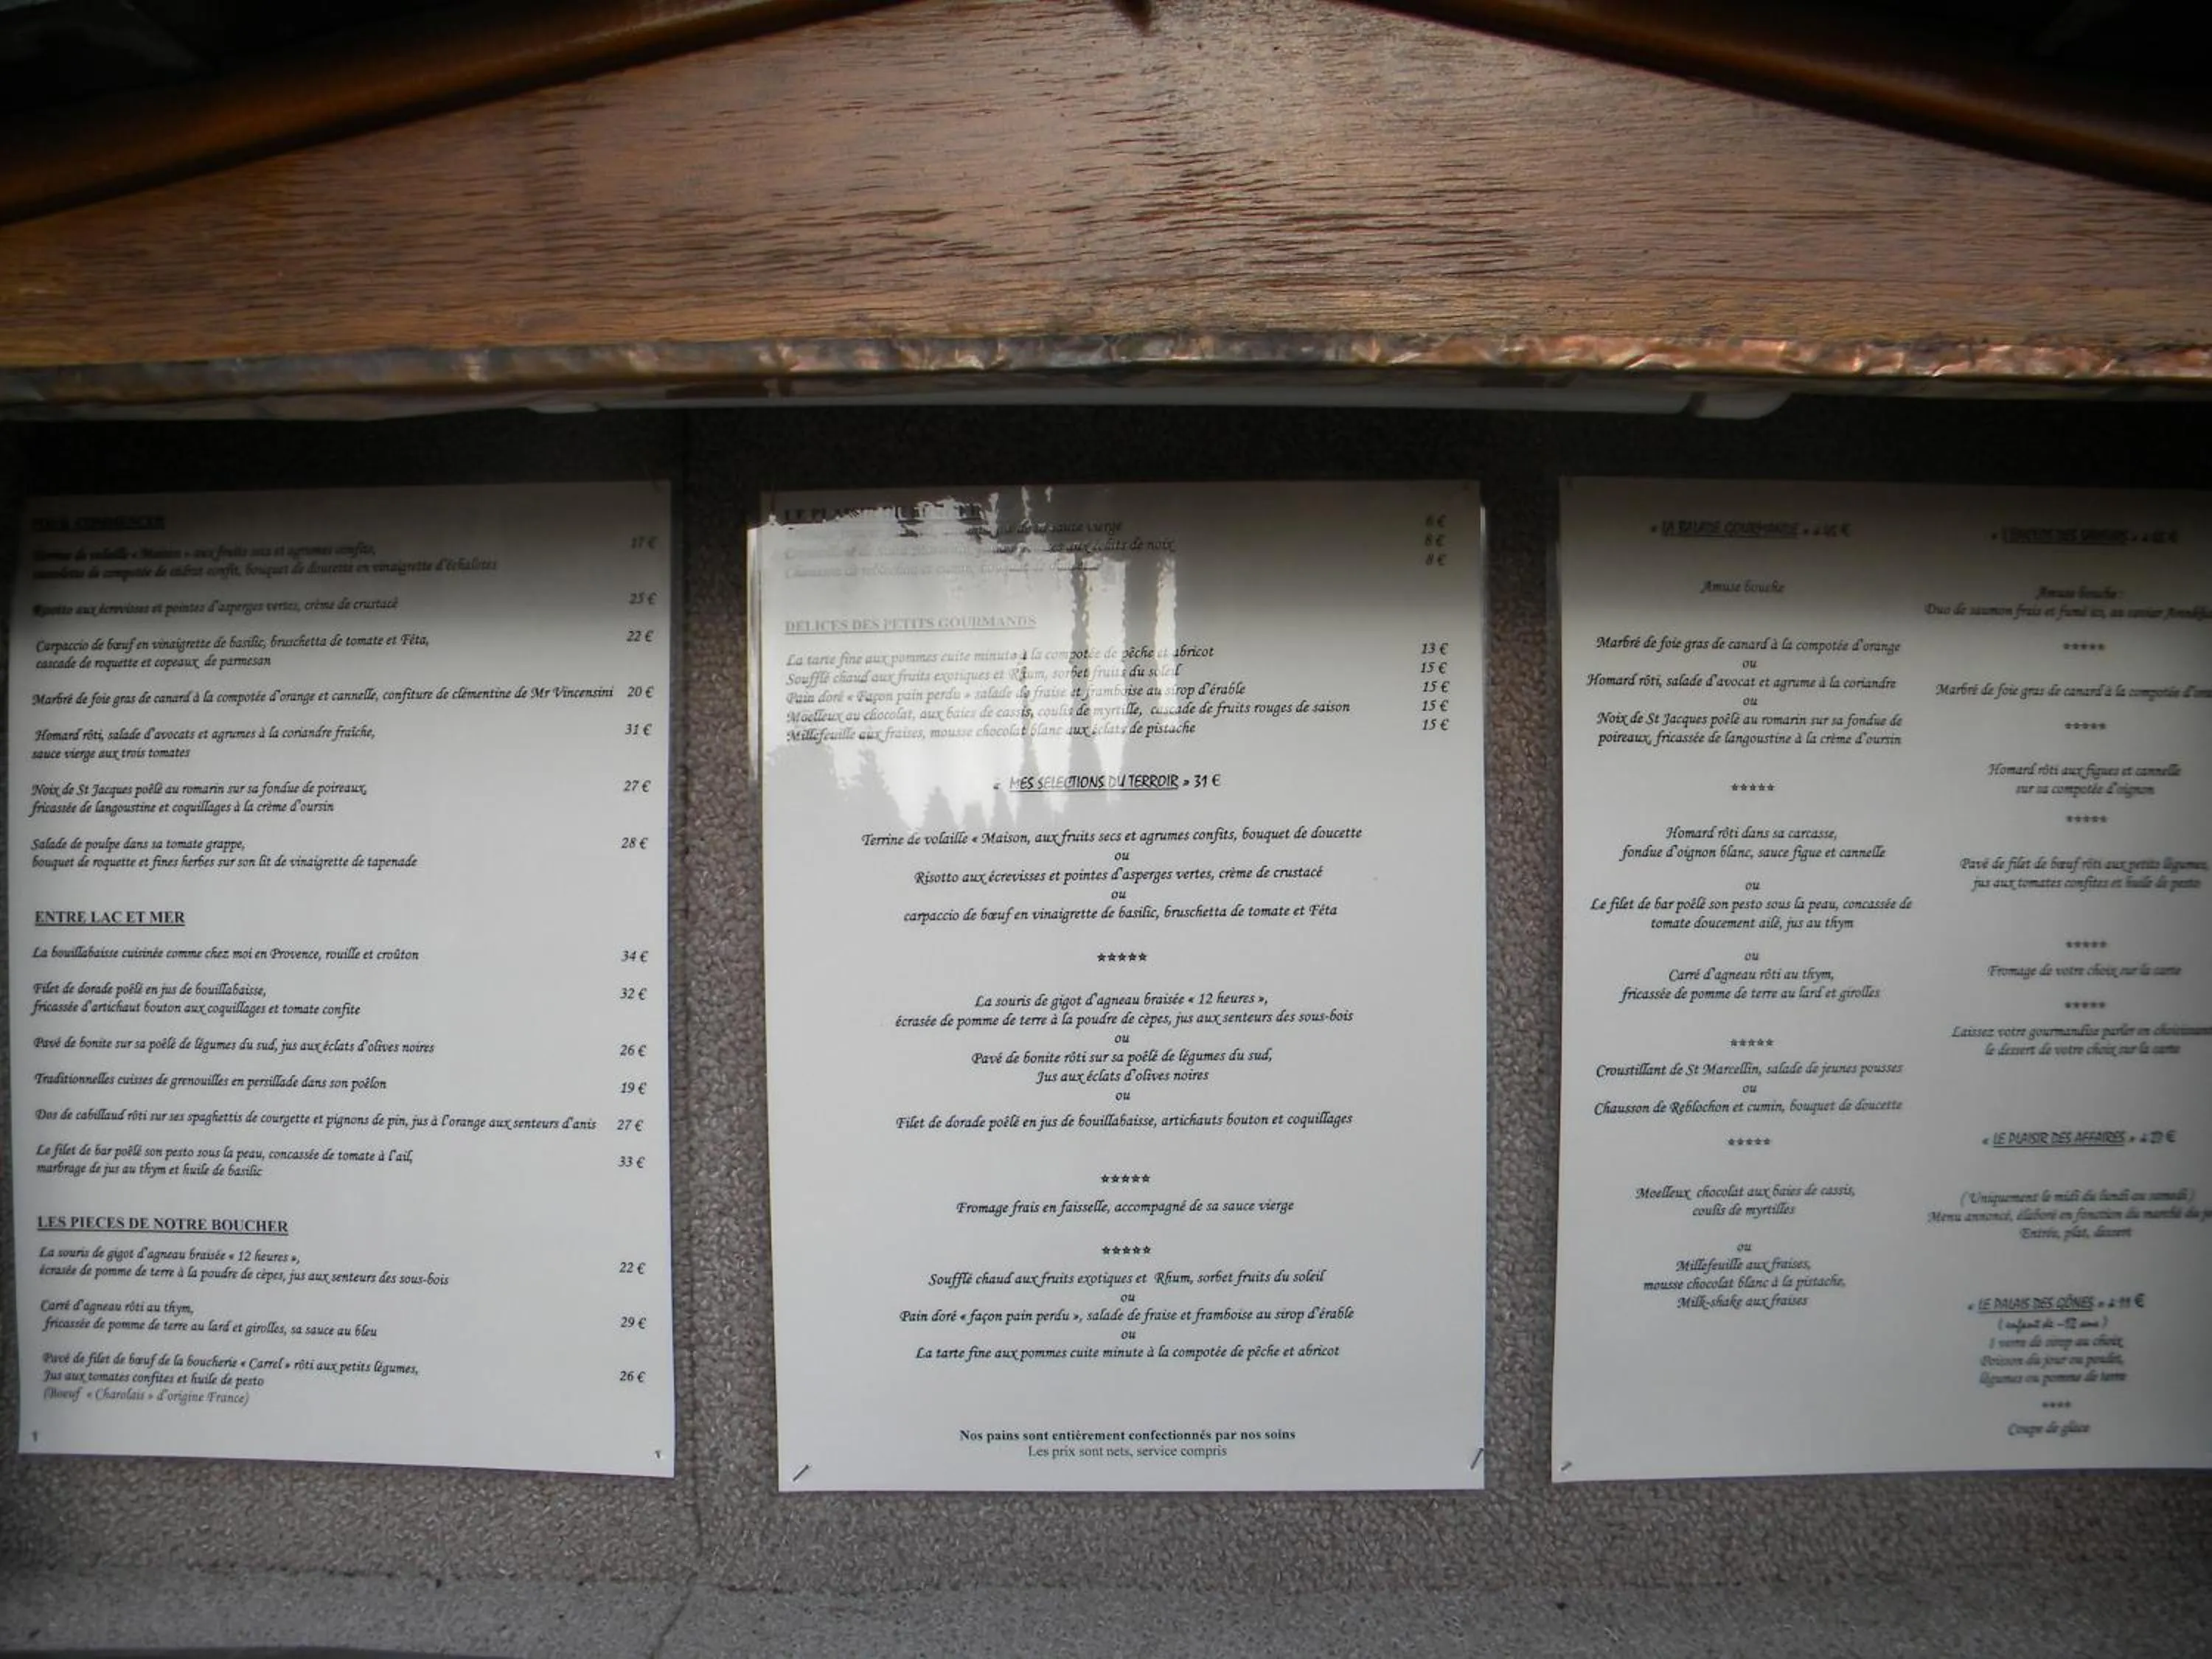 POUR COMMENCER
Terrine de volaille « Maison » aux fruits secs et agrumes confits, 17 €
compotée de cédrat confit, bouquet de doucette en vinaigrette d'échalotes
Risotto aux écrevisses et pointes d'asperges vertes, crème de crustacé 25 €
Carpaccio de bœuf en vinaigrette de basilic, bruschetta de tomate et Féta, 22 €
cascade de roquette et copeaux de parmesan
Marbré de foie gras de canard à la compotée d'orange et cannelle, confiture de clémentine de Mr Vincensini 20 €
Homard rôti, salade d'avocats et agrumes à la coriandre fraîche, 31 €
sauce vierge aux trois tomates
Noix de St Jacques poêlé au romarin sur sa fondue de poireaux, 27 €
fricassée de langoustine et coquillages à la crème d'oursin
Salade de poulpe dans sa tomate grappe, 28 €
bouquet de roquette et fines herbes sur son lit de vinaigrette de tapenade
ENTRE LAC ET MER
La bouillabaisse cuisinée comme chez moi en Provence, rouille et croûton 34 €
Filet de dorade poêlé en jus de bouillabaisse, 32 €
fricassée d'artichaut bouton aux coquillages et tomate confite
Pavé de bonite sur sa poêlé de légumes du sud, jus aux éclats d'olives noires 26 €
Traditionnelles cuisses de grenouilles en persillade dans son poêlon 19 €
Dos de cabillaud rôti sur ses spaghettis de courgette et pignons de pin, jus à l'orange aux senteurs d'anis 27 €
Le filet de bar poêlé son pesto sous la peau, concassée de tomate à l'ail, 33 €
marbrage de jus au thym et huile de basilic
LES PIECES DE NOTRE BOUCHER
La souris de gigot d'agneau braisée « 12 heures »,
écrasée de pomme de terre à la poudre de cèpes, jus aux senteurs des sous-bois 22 €
Carré d'agneau rôti au thym,
fricassée de pomme de terre au lard et girolles, sa sauce au bleu 29 €
Pavé de filet de bœuf de la boucherie « Carrel » rôti aux petits légumes,
Jus aux tomates confites et huile de pesto 26 €
(Boeuf « Charolais » d'origine France)
LE PLAISIR
sauce vierge 6 €
aux éclats de noix 8 €
Chausson de reblochon et cumin, 8 €
DELICES DES PETITS GOURMANDS
La tarte fine aux pommes cuite minute à la compotée de pêche et abricot 13 €
Soufflé chaud aux fruits exotiques et Rhum, sorbet fruits du soleil 15 €
Pain doré « Façon pain perdu » salade de fraise et framboise au sirop d'érable 15 €
Moelleux au chocolat, aux baies de cassis, coulis de myrtille, cascade de fruits rouges de saison 15 €
Millefeuille aux fraises, mousse chocolat blanc aux éclats de pistache 15 €
« MES SELECTIONS DU TERROIR » 31 €
Terrine de volaille « Maison, aux fruits secs et agrumes confits, bouquet de doucette
ou
Risotto aux écrevisses et pointes d'asperges vertes, crème de crustacé
ou
carpaccio de bœuf en vinaigrette de basilic, bruschetta de tomate et Féta
*****
La souris de gigot d'agneau braisée « 12 heures »,
écrasée de pomme de terre à la poudre de cèpes, jus aux senteurs des sous-bois
ou
Pavé de bonite rôti sur sa poêlé de légumes du sud,
Jus aux éclats d'olives noires
ou
Filet de dorade poêlé en jus de bouillabaisse, artichauts bouton et coquillages
*****
Fromage frais en faisselle, accompagné de sa sauce vierge
*****
Soufflé chaud aux fruits exotiques et Rhum, sorbet fruits du soleil
ou
Pain doré « façon pain perdu », salade de fraise et framboise au sirop d'érable
ou
La tarte fine aux pommes cuite minute à la compotée de pêche et abricot
Nos pains sont entièrement confectionnés par nos soins
Les prix sont nets, service compris
« LA BALADE GOURMANDE » à €
Amuse bouche
Marbré de foie gras de canard à la compotée d'orange
ou
Homard rôti, salade d'avocat et agrume à la coriandre
ou
Noix de St Jacques poêlé au romarin sur sa fondue de
poireaux, fricassée de langoustine à la crème d'oursin
*****
Homard rôti dans sa carcasse,
fondue d'oignon blanc, sauce figue et cannelle
ou
Le filet de bar poêlé son pesto sous la peau, concassée de
tomate doucement ailé, jus au thym
ou
Carré d'agneau rôti au thym,
fricassée de pomme de terre au lard et girolles
*****
Croustillant de St Marcellin, salade de jeunes pousses
ou
Chausson de Reblochon et cumin, bouquet de doucette
*****
Moelleux chocolat aux baies de cassis,
coulis de myrtilles
ou
Millefeuille aux fraises,
mousse chocolat blanc à la pistache,
Milk-shake aux fraises
Amuse bouche :
Duo de saumon frais et fumé ici, au caviar
*****
Marbré de foie gras de canard à la compotée
*****
Homard rôti aux figues et cannelle
sur sa compotée d'oignon
*****
Pavé de filet de bœuf rôti aux petits légumes,
jus aux tomates confites et huile de pesto
*****
Fromage de votre choix sur la carte
*****
Laissez votre gourmandise parler en
le dessert de votre choix sur la carte
« LE PLAISIR DES AFFAIRES » à €
(Uniquement le midi du lundi au samedi)
Menu annoncé, élaboré en fonction du marché du
Entrée, plat, dessert
« LE PALAIS DES GÔNES » à 11 €
(enfant de -12 ans)
1 verre de sirop au choix
Poisson du jour ou poulet,
légumes ou pomme de terre
****
Coupe de glace